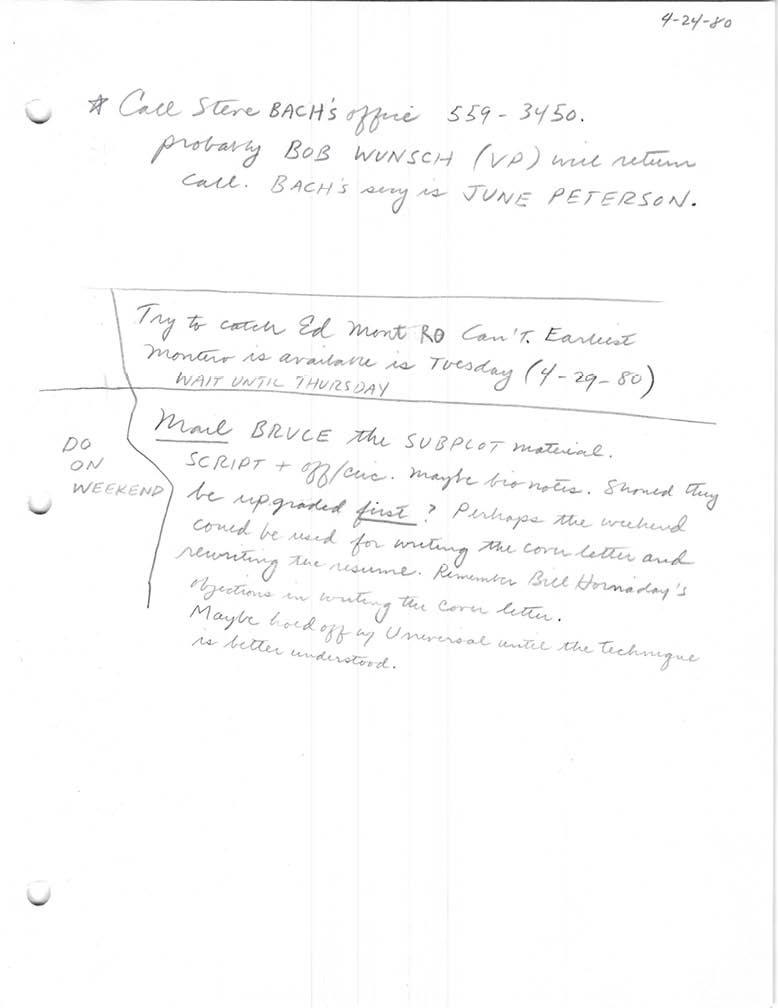 4-24-80
* Call Steve BACH's office 559-3450.
probably BOB WUNSCH (VP) will return
call. BACH's secy is JUNE PETERSON.
Try to catch Ed Mont RO Can't. Earliest
Montero is available is Tuesday (4-29-80)
WAIT UNTIL THURSDAY
Mail BRUCE the SUBPLOT material.
DO
ON
WEEKEND
SCRIPT + off/circ. Maybe bio notes. Should they
be upgraded first? Perhaps the weekend
could be used for writing the cover letter and
rewriting the resume. Remember Bill Hornaday's
objections in writing the cover letter.
Maybe hold off w/ Universal until the technique
is better understood.